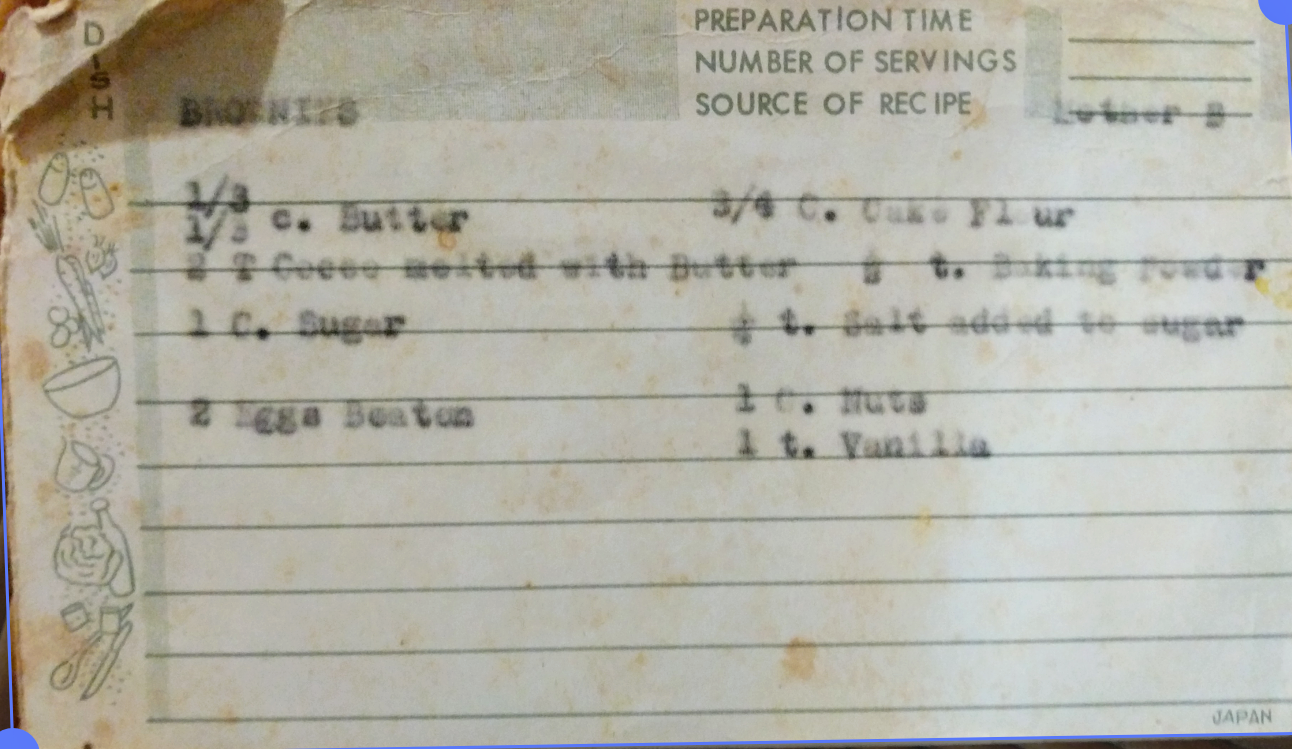 DISH
PREPARATION TIME
NUMBER OF SERVINGS
SOURCE OF RECIPE Mother B
BROWNIES
1/3
1/3 c. Butter 3/4 C. Cake Flour
2 T Cocoa melted with Butter t. Baking Powder
1 C. Sugar t. Salt added to sugar
2 Eggs Beaton 1 C. Nuts
1 t. Vanilla
JAPAN